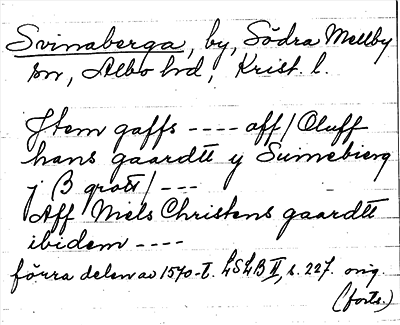 Svinaberga, by, Södra Mellby
sn, Albo hd, Krist. l.
Jtem gaffs ---- aff / Oluff
hans gaardtt y Suinebierg
j β grott / ---
Aff Niels Christens gaardtt
ibidem ----
förra delen av 1570-t. LSLB II, s. 227. orig.
(forts.)